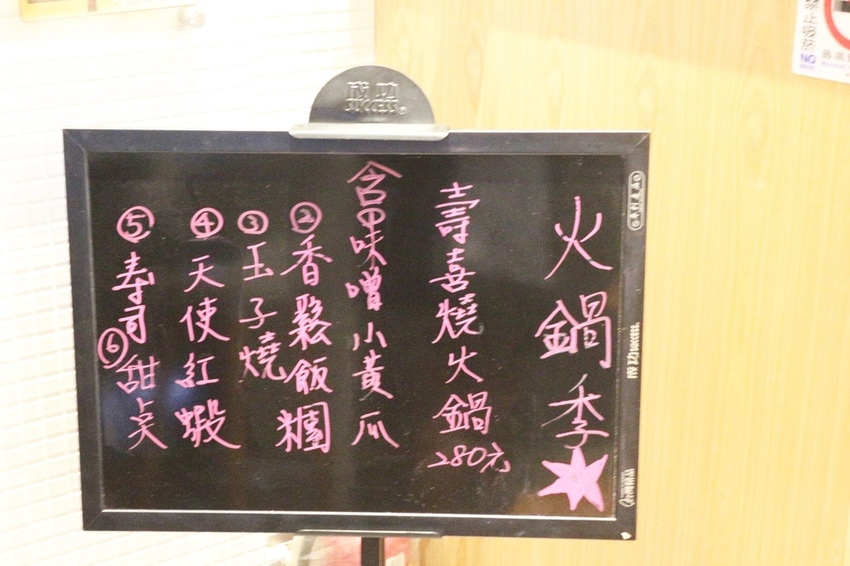 火鍋季
壽喜燒火鍋280元
含①味噌小黃瓜
②香鬆飯糰
③玉子燒
④天使紅蝦
⑤寿司
⑥甜点
成功
SUCCESS
NO